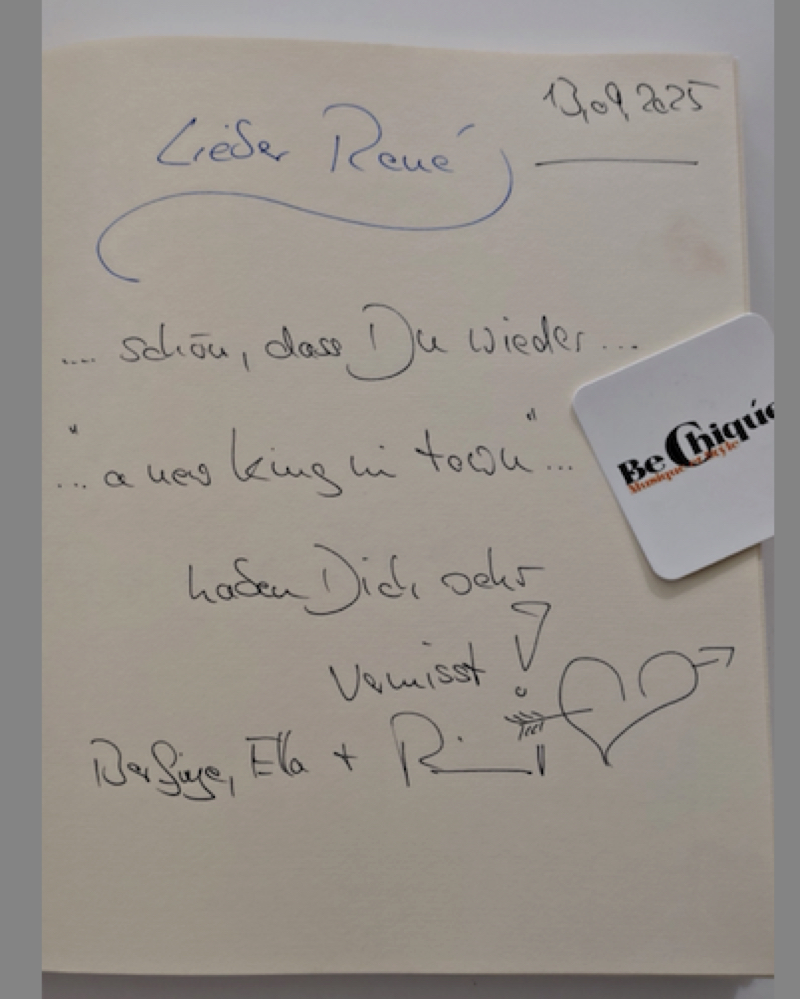 13.09.2025
Lieber René
.... schön, dass Du wieder ...
... "a new king in town" ...
haben Dich sehr
vermisst!
Ella +
Be Chique
Musique Style